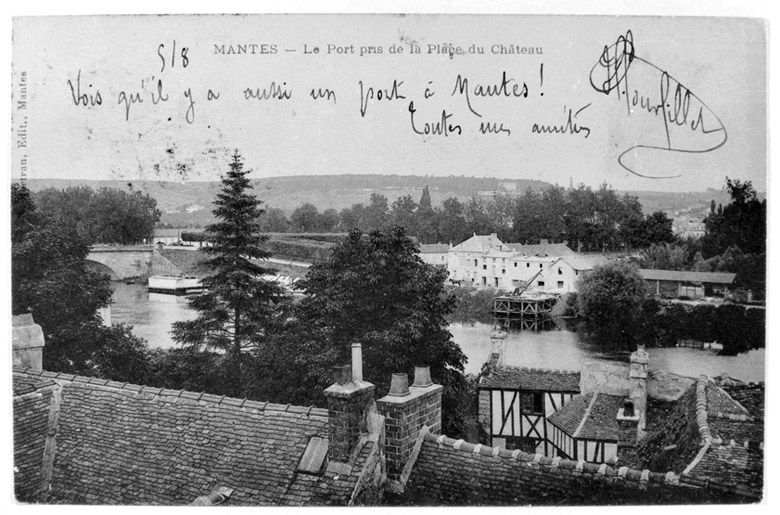 5/8
MANTES — Le Port pris de la Place du Château
Vois qu'il y a aussi un port à Mantes !
Toutes mes amitiés
Edit., Mantes